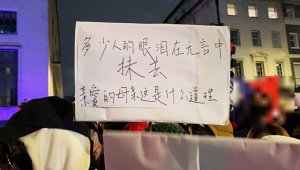 多少人的眼泪在无言中
抹去
亲爱的母亲这是什么道理